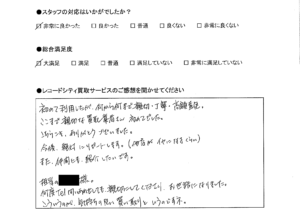 ●スタッフの対応はいかがでしたか？
☑非常に良かった □良かった □普通 □良くない □非常に良くない
●総合満足度
☑大満足 □満足 □普通 □満足していない □非常に満足していない
●レコードシティ買取サービスのご感想を聞かせてください
初めて利用したが、何から何まで親切・丁寧・高額査定。
ここまで親切な買取業者さん 初めてでした。
ありがとうございました。
今後、絶対にリピートします。（他店がイヤになるくらい）
また、仲間にも、紹介したいです。
担当の 様。
何度も問い合わせをしても、親切にしてくださり、お世話になりました。
こういうのが、気持ちの良い 買い取り というのですネ。